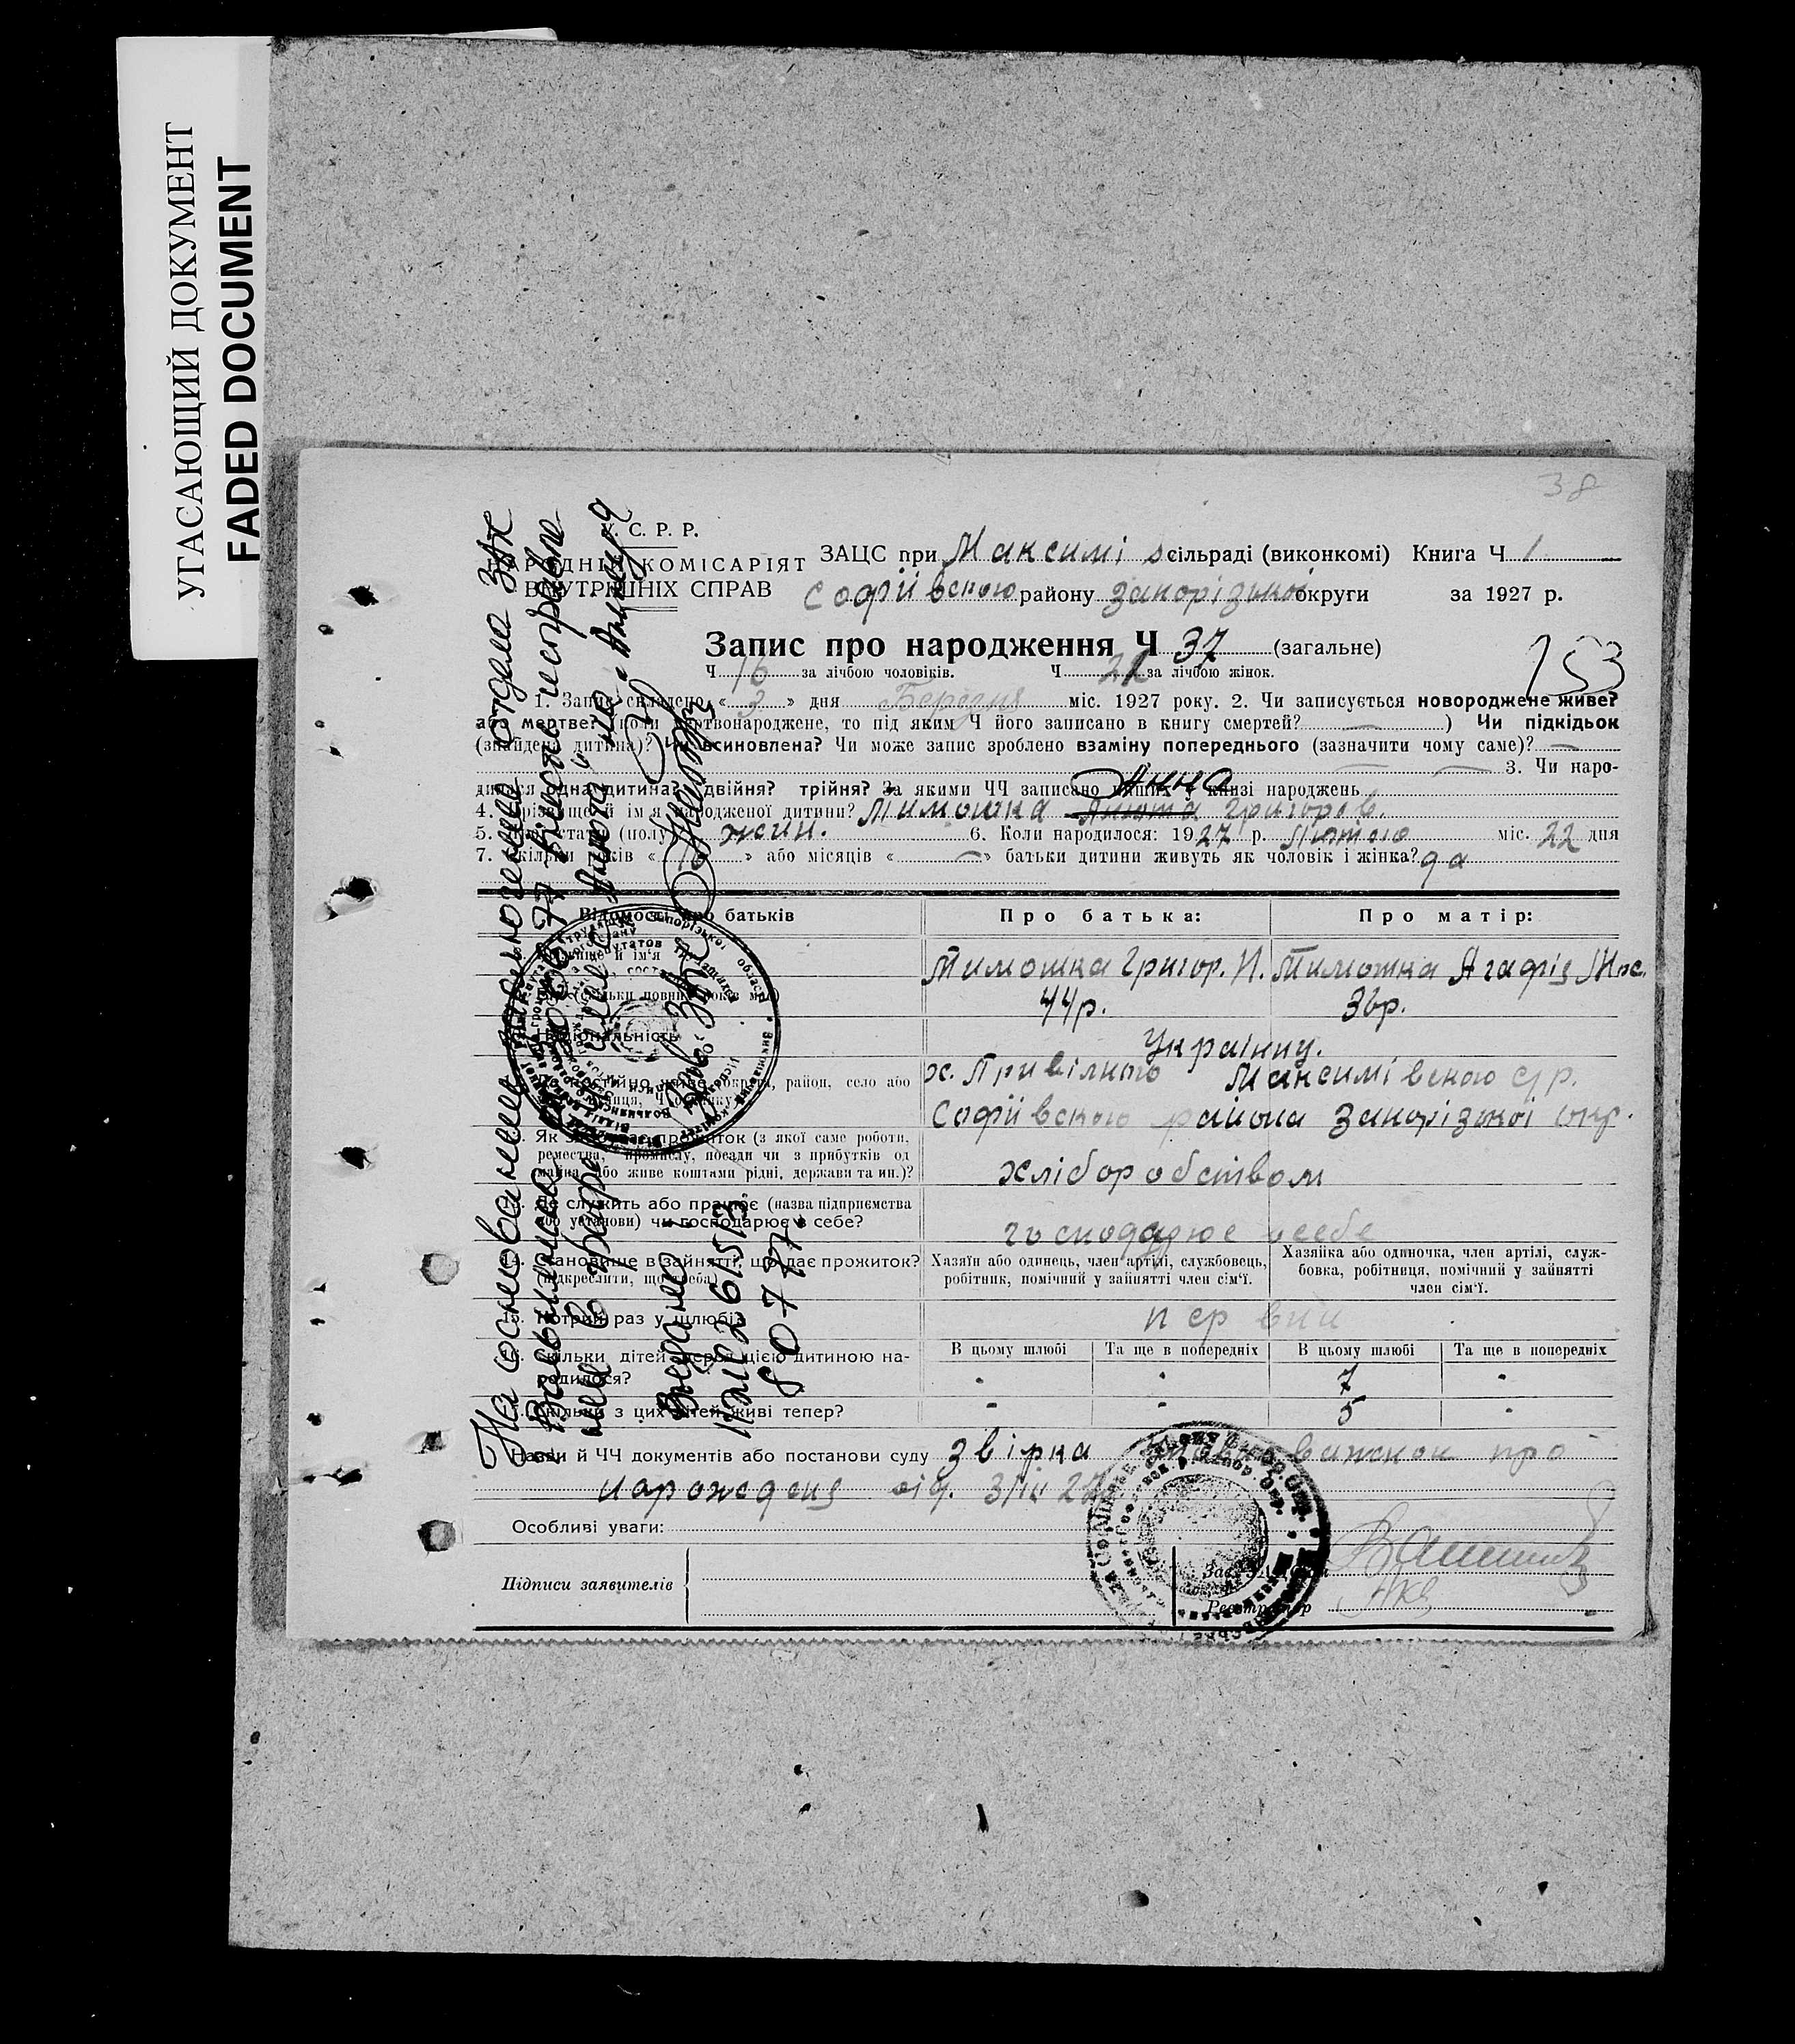 УГАСАЮЩИЙ ДОКУМЕНТ
FADED DOCUMENT
38
У. С. Р. Р.
НАРОДНІЙ КОМІСАРІЯТ
ВНУТРІШНІХ СПРАВ
ЗАЦС при Максимівс сільраді (виконкомі) Книга Ч 1
Софіївського району Запорізької округи за 1927 р.
Запис про народження Ч 37 (загальне)
153
Ч 16 за лічбою чоловіків. Ч 21 за лічбою жінок.
1. Запис складено «3» дня Березня міс. 1927 року. 2. Чи записується новороджене живе?
або мертве? (коли мертвонароджене, то під яким Ч його записано в книгу смертей? — ) Чи підкідьок
(знайдена дитина)? Чи всиновлена? Чи може запис зроблено взаміну попереднього (зазначити чому саме)? —
— — 3. Чи наро-
дилася одна дитина? двійня? трійня? За якими ЧЧ записано інших у книзі народжень
Анна
4. Прізвище й ім'я народженої дитини? Тимошка Анюта Григоров.
5. Якої статі (полу)? жін. 6. Коли народилося: 1927 р. Лютого міс. 22 дня
7. Скільки років « » або місяців « — » батьки дитини живуть як чоловік і жінка? да
Відомості про батьків
Про батька:
Про матір:
8. Прізвище й ім'я
Тимошка Григор. И.
Тимошка Агафія
9. Вік (скільки повних років має)
44р.
36р.
10. Національність
Українц.
11. Де постійно живе (округа, район, село або
х. Привільного Максимівського с/р.
Софіївського района Запорізкої окр.
12. Як заробляє прожиток (з якої саме роботи,
ремества, промислу, посади чи з прибутків од
майна, або живе коштами рідні, держави та ин.)?
хліборобством
13. Де служить або працює (назва підприємства
або установи) чи господарює в себе?
господарює в себе
14. Становище в зайнятті, що дає прожиток?
(підкреслити, що треба)
Хазяїн або одинець, член артілі, службовець,
робітник, помічний у зайнятті член сім'ї.
Хазяйка або одиночка, член артілі, служ-
бовка, робітниця, помічний у зайнятті
член сім'ї.
15. Котрий раз у шлюбі?
первий
16. Скільки дітей перед цією дитиною на-
родилося?
В цьому шлюбі
Та ще в попередніх
В цьому шлюбі
Та ще в попередніх
7
17. Скільки з цих дітей живі тепер?
5
Назви й ЧЧ документів або постанови суду звірка про
нарождения від. 3/III 27
Особливі уваги:
Підписи заявителів
Зав. ЗАЦСом
Реєстратор
На основании заключения отдела ЗАГС
Вольнянска от 77 внесено исправле-
ние в графе имя с „Анюта" на „Анна"
Зав. ЗАГС
Выдано
807 77